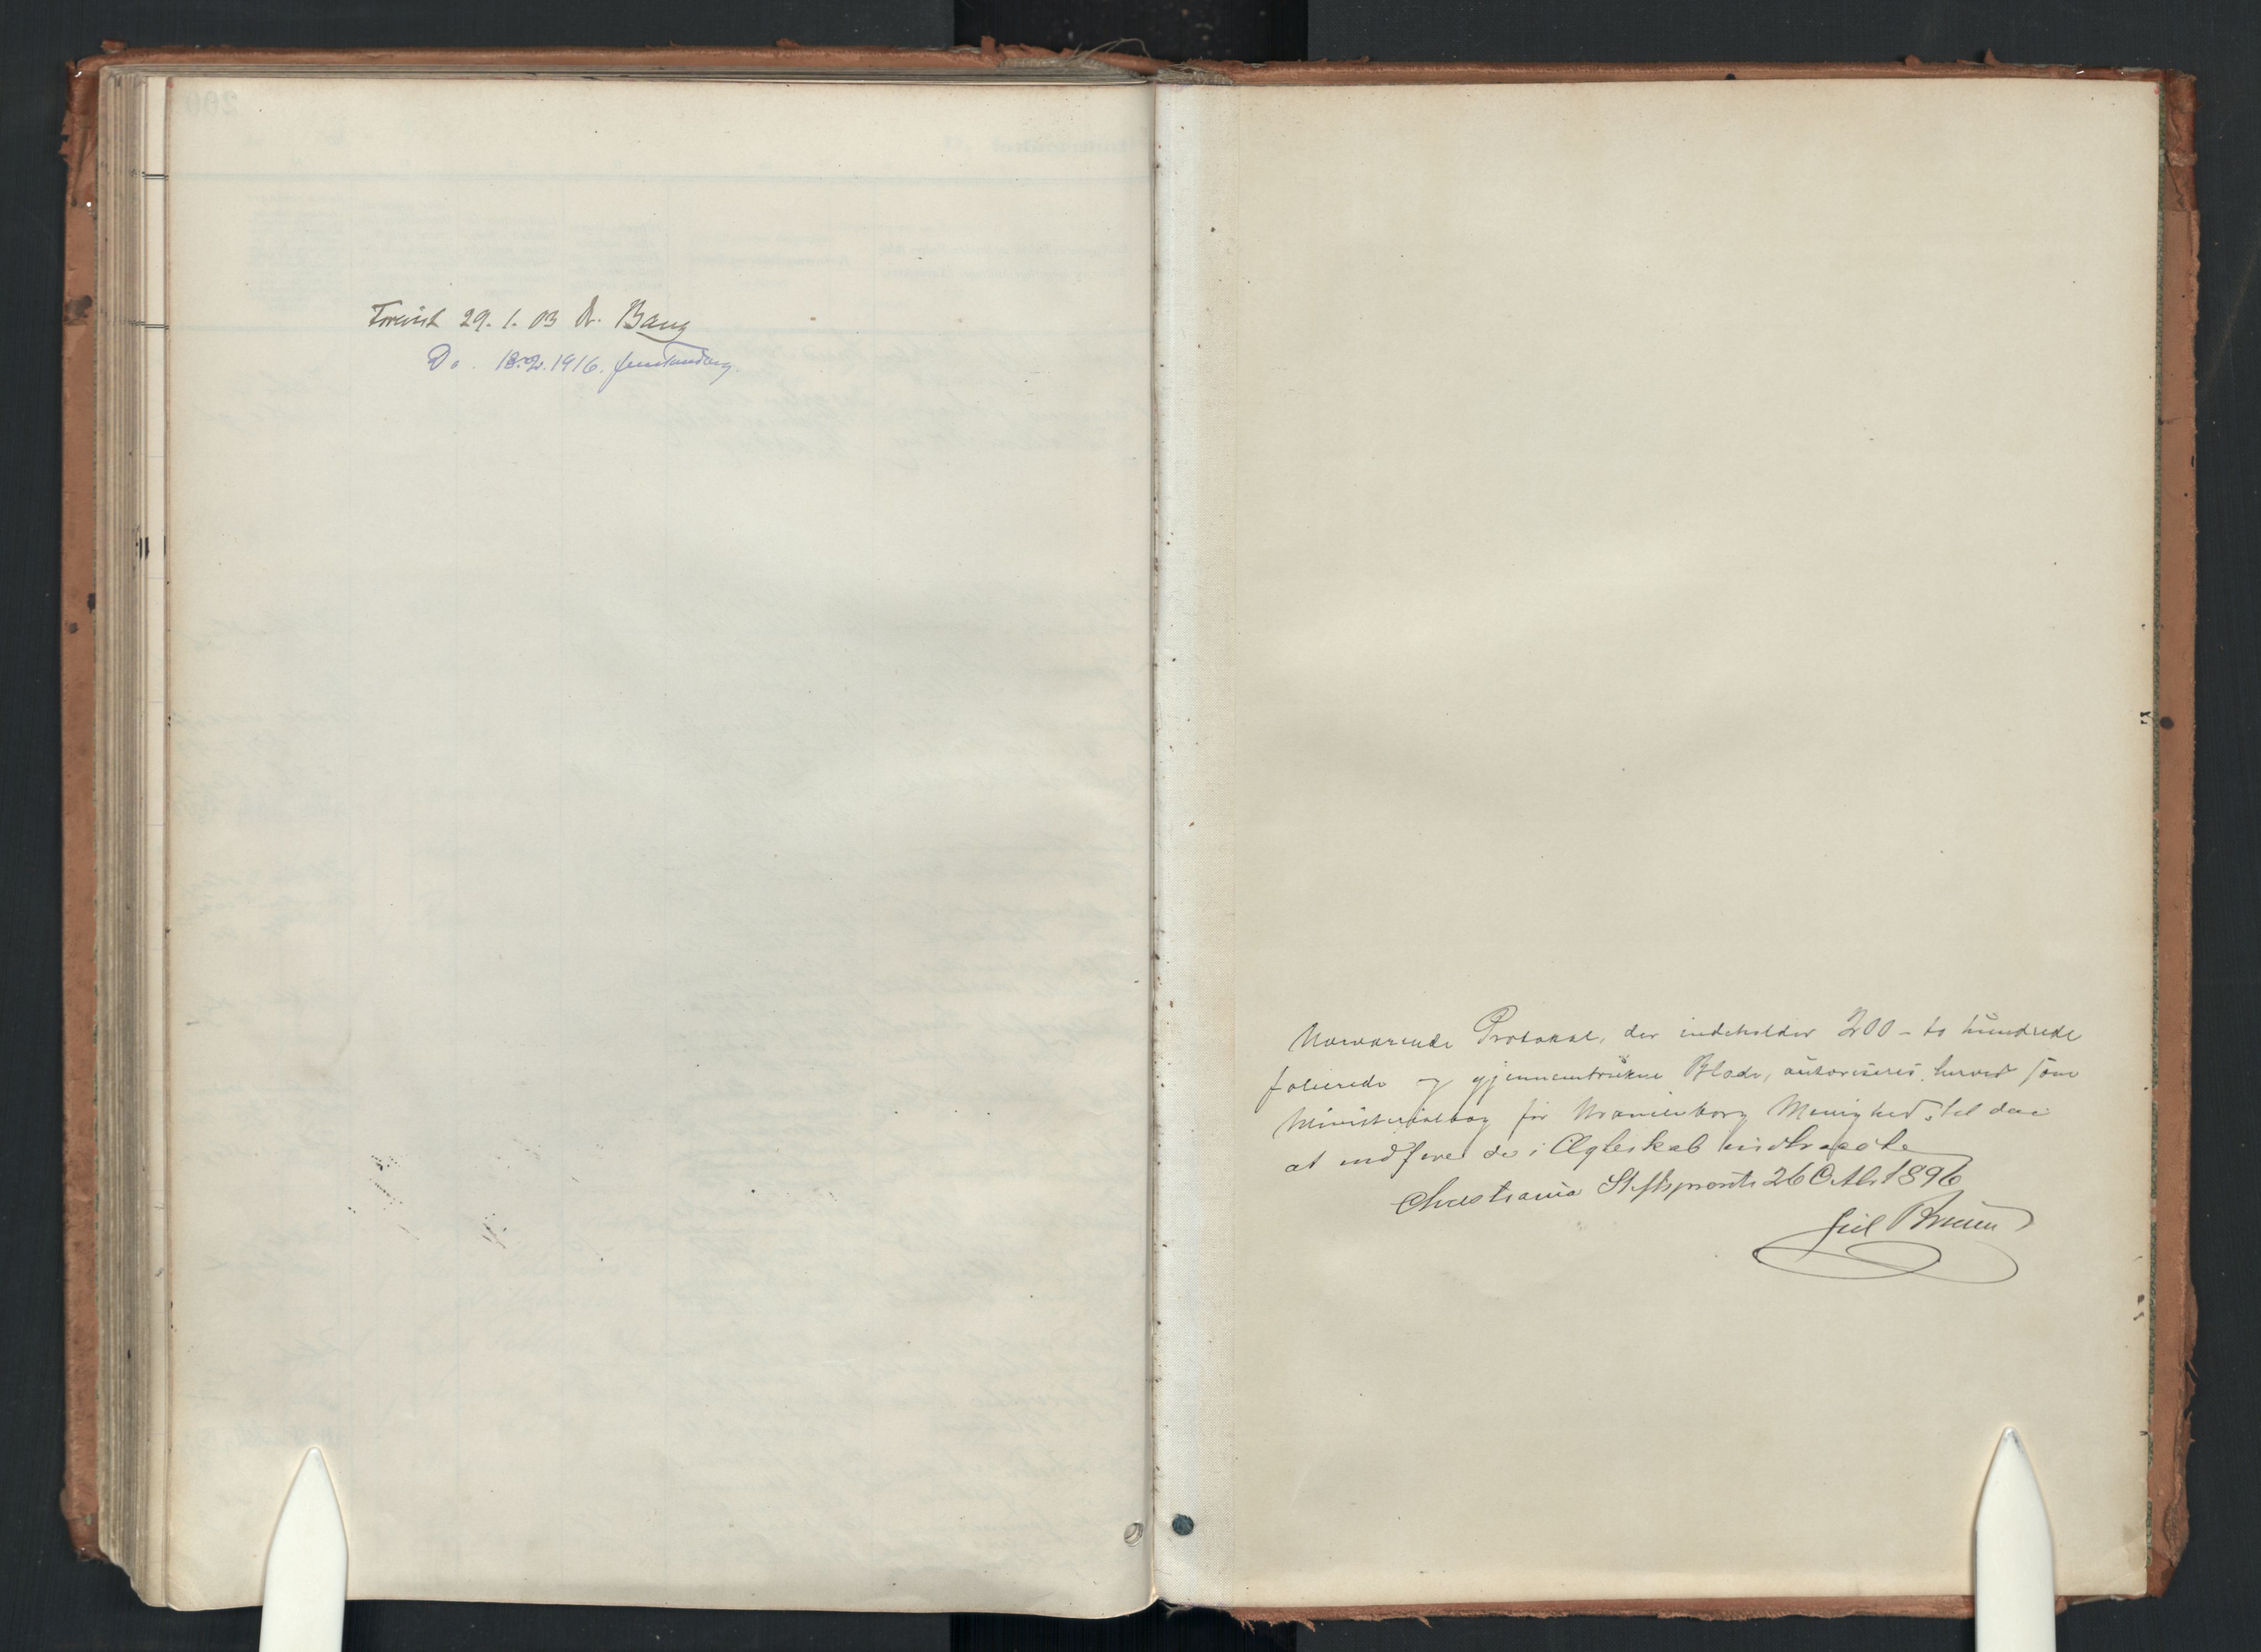 Forevist 29. 1. 03 A. Bang
Do. 18.2.1916. Jens Tandberg.
Nærværende Protokol, der indeholder 200 - to hundrede
folierede og gjennemtrukne Blade, autoriseres herved som
Ministerialbog for Uranienborg Menighed, til deri
at indføre de i Ægteskab indtraadte
Christiania Stiftsprovsti 26 Oktb. 1896
Bruun